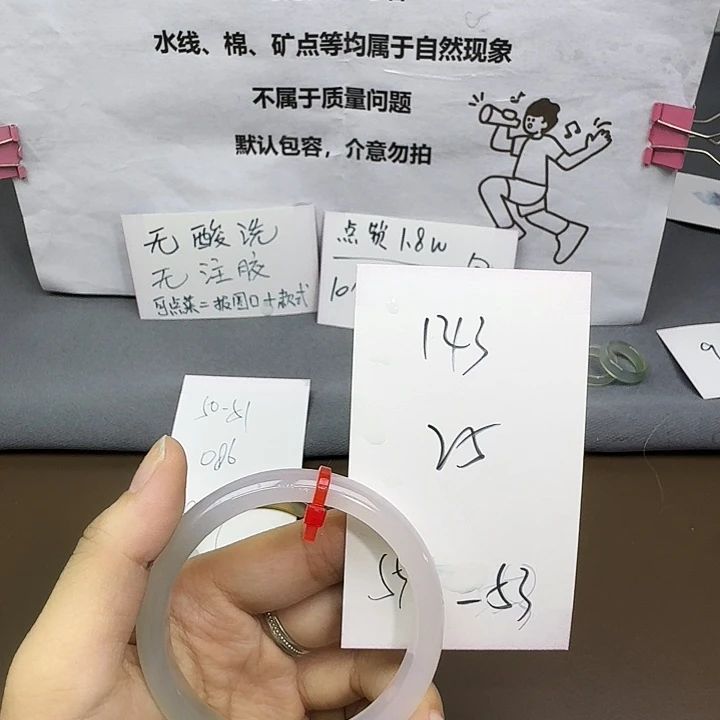 水线、棉、矿点等均属于自然现象
不属于质量问题
默认包容，介意勿拍
无酸洗
无注胶
可点菜=报圈口+款式
点锁1.8w
10
143
25
-53
50-51
086
9